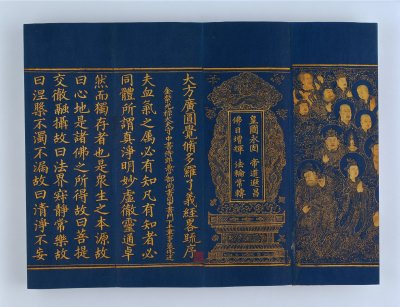 皇圖永固 帝道遐昌
佛日增輝 法輪常轉
大方廣圓覺脩多羅了義經畧疏序
夫血氣之属必有知凡有知者必
同體所謂真淨明妙虛徹靈通卓
然而獨存者也是衆生之本源故
曰心地是諸佛之所得故曰菩提
交徹融攝故曰法界寂靜常樂故
曰涅槃不濁不漏故曰清淨不妄